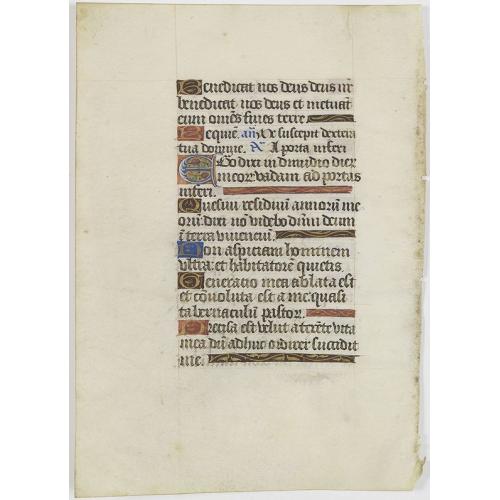 Benedicat nos deus deus nr̄
benedicat nos deus et metuāt
eum omēs fines terre
Requiē. añ. Me suscepit dextera
tua domine. ps̄. A porta inferi
Ego dixi in dimidio dier̄
meor̄ vadam ad portas
inferi.
Quesivi residuū annorū me
orū: dixi nō videbo dn̄m deum
ī terra viventiū.
Non aspiciam hominem
ultra: et habitatorē quietis
Generacio mea ablata est
et cōvoluta est a me: quasi
tabernaculū pastor̄.
Precisa est velut a texēte vita
mea dū adhuc ordirer succidit
me.